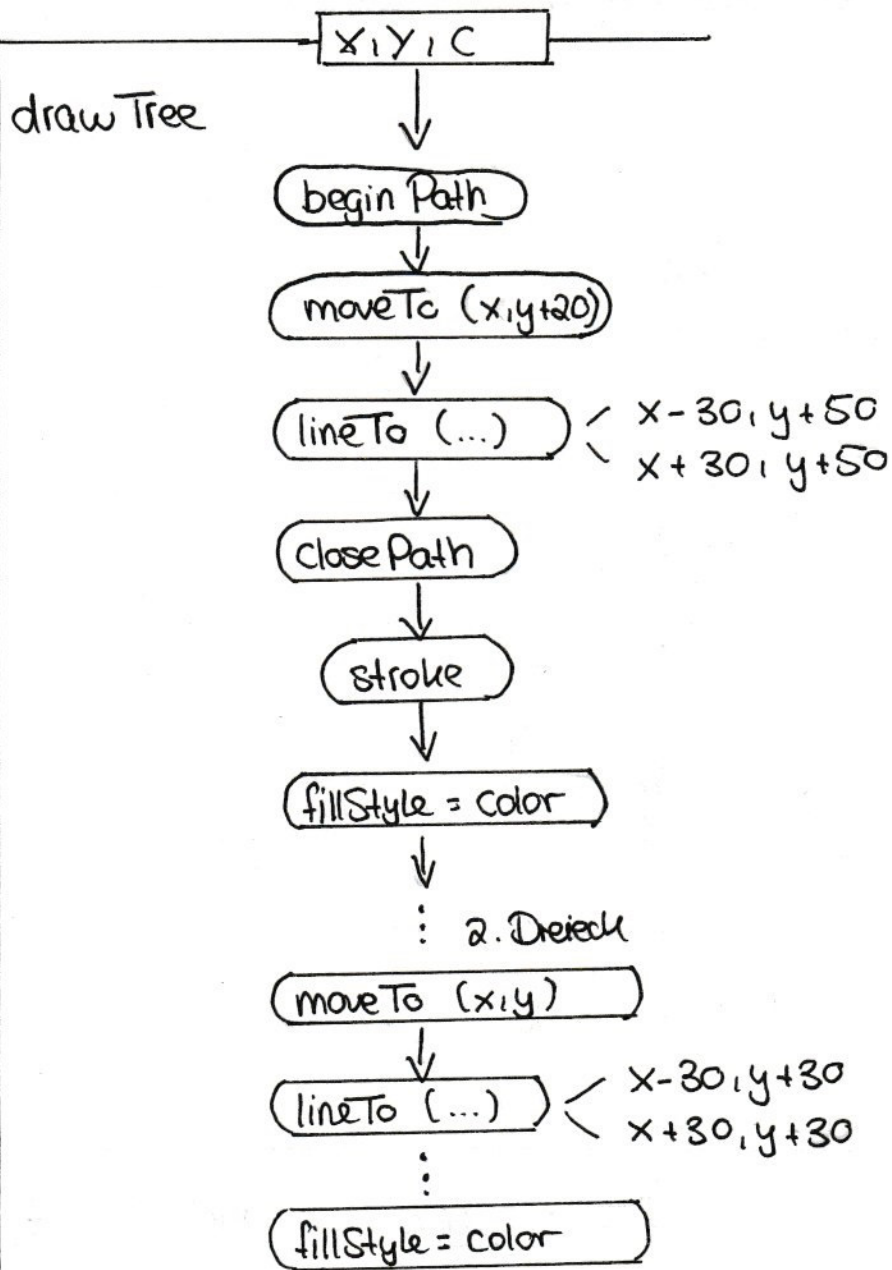 x, y, c
drawTree
beginPath
moveTo (x, y+20)
lineTo (...)
x-30, y+50
x+30, y+50
closePath
stroke
fillStyle = color
⋮ 2. Dreieck
moveTo (x, y)
lineTo (...)
x-30, y+30
x+30, y+30
⋮
fillStyle = color